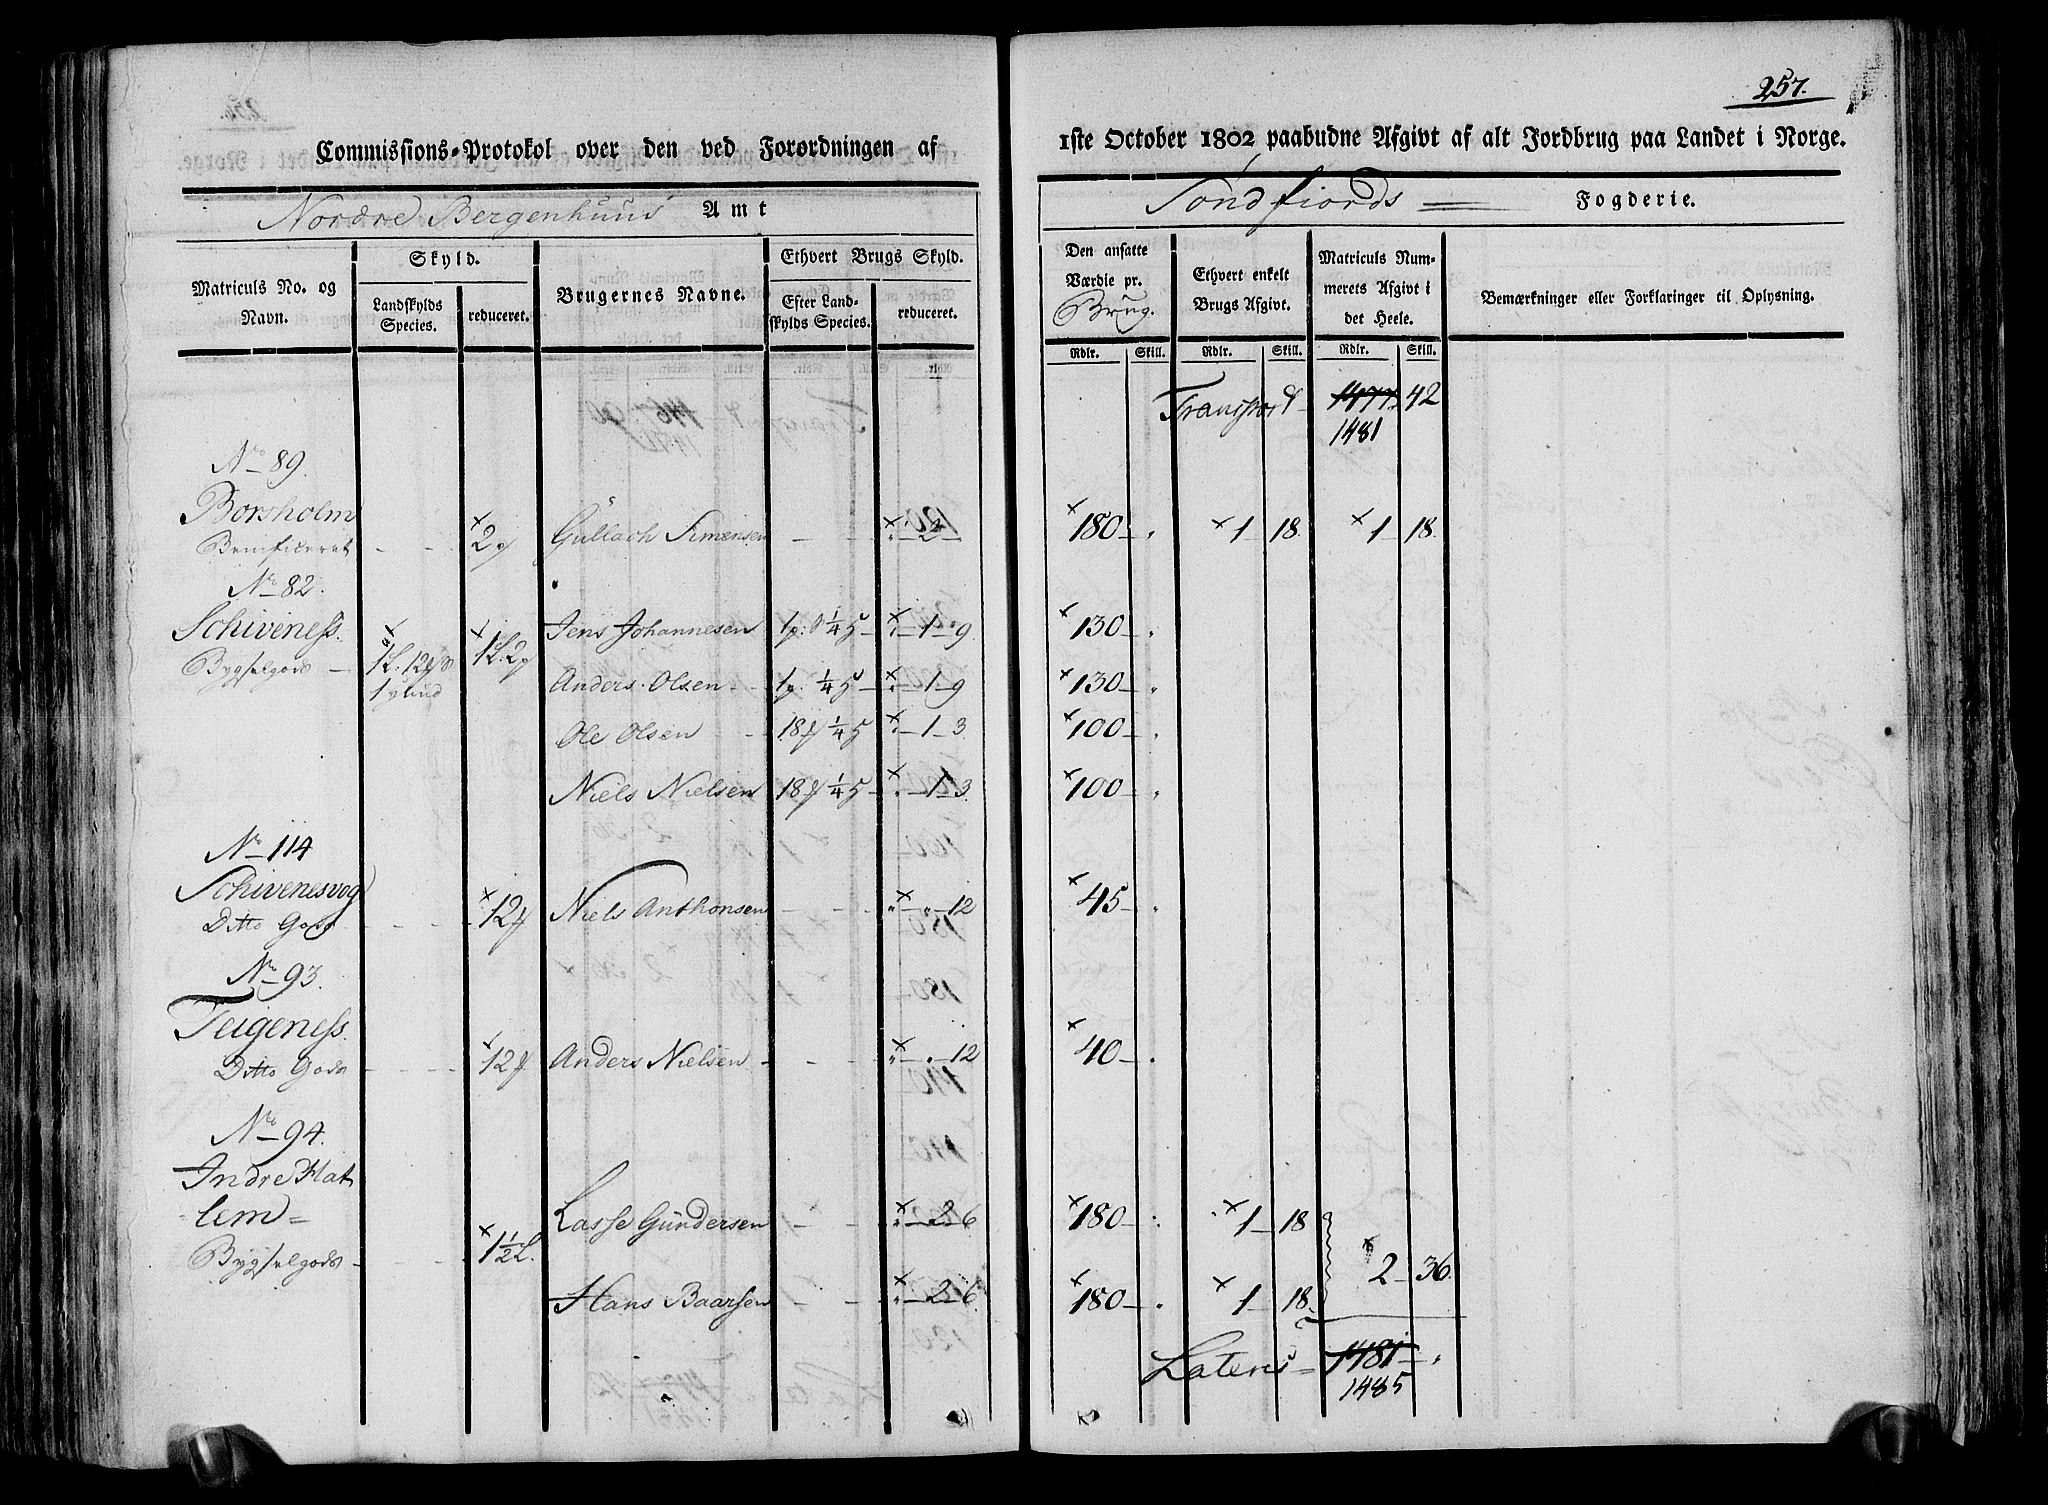 257.
Commissions-Protokol over den ved Forordningen af 1ste October 1802 paabudne Afgivt af alt Jordbrug paa Landet i Norge.
Nordre Bergenhuus Amt Söndfiords Fogderie.
Matriculs No. og Navn. Skyld. Brugernes Navne. Ethvert Brugs Skyld. Den ansatte Værdie pr. Brug. Ethvert enkelt Brugs Afgivt. Matriculs Nummerets Afgivt i det Heele. Bemærkninger eller Forklaringer til Oplysning.
Landskylds Species. reduceret. Efter Landskylds Species. reduceret.
Rdlr. Skill. Rdlr. Skill. Rdlr. Skill.
Transport 1477 42
1481
No 89.
Borsholm
Beneficeret 2 Gullach Simensen 2 180 1 18 1 18
No 82.
Schiveness. Jens Johannesen 1 1/4 5 1 9 130
Bygselgods 1 12 1 2
Anders Olsen 1 1/4 5 1 9 130
Ole Olsen 18 1/4 5 1 3 100
Niels Nielsen 18 1/4 5 1 3 100
No 114
Schivenesvog
Ditto Gods 12 Niels Anthonsen 12 45
No 93.
Teigeness.
Ditto Gods 12 Anders Nielsen 12 40
No 94.
Indre Hat
lem Lasse Gundersen 2 6 180 1 18
Bygselgods 1 1/2 L. 2 36.
Hans Baarsen 2 6 180 1 18
Lateris 1481
1485